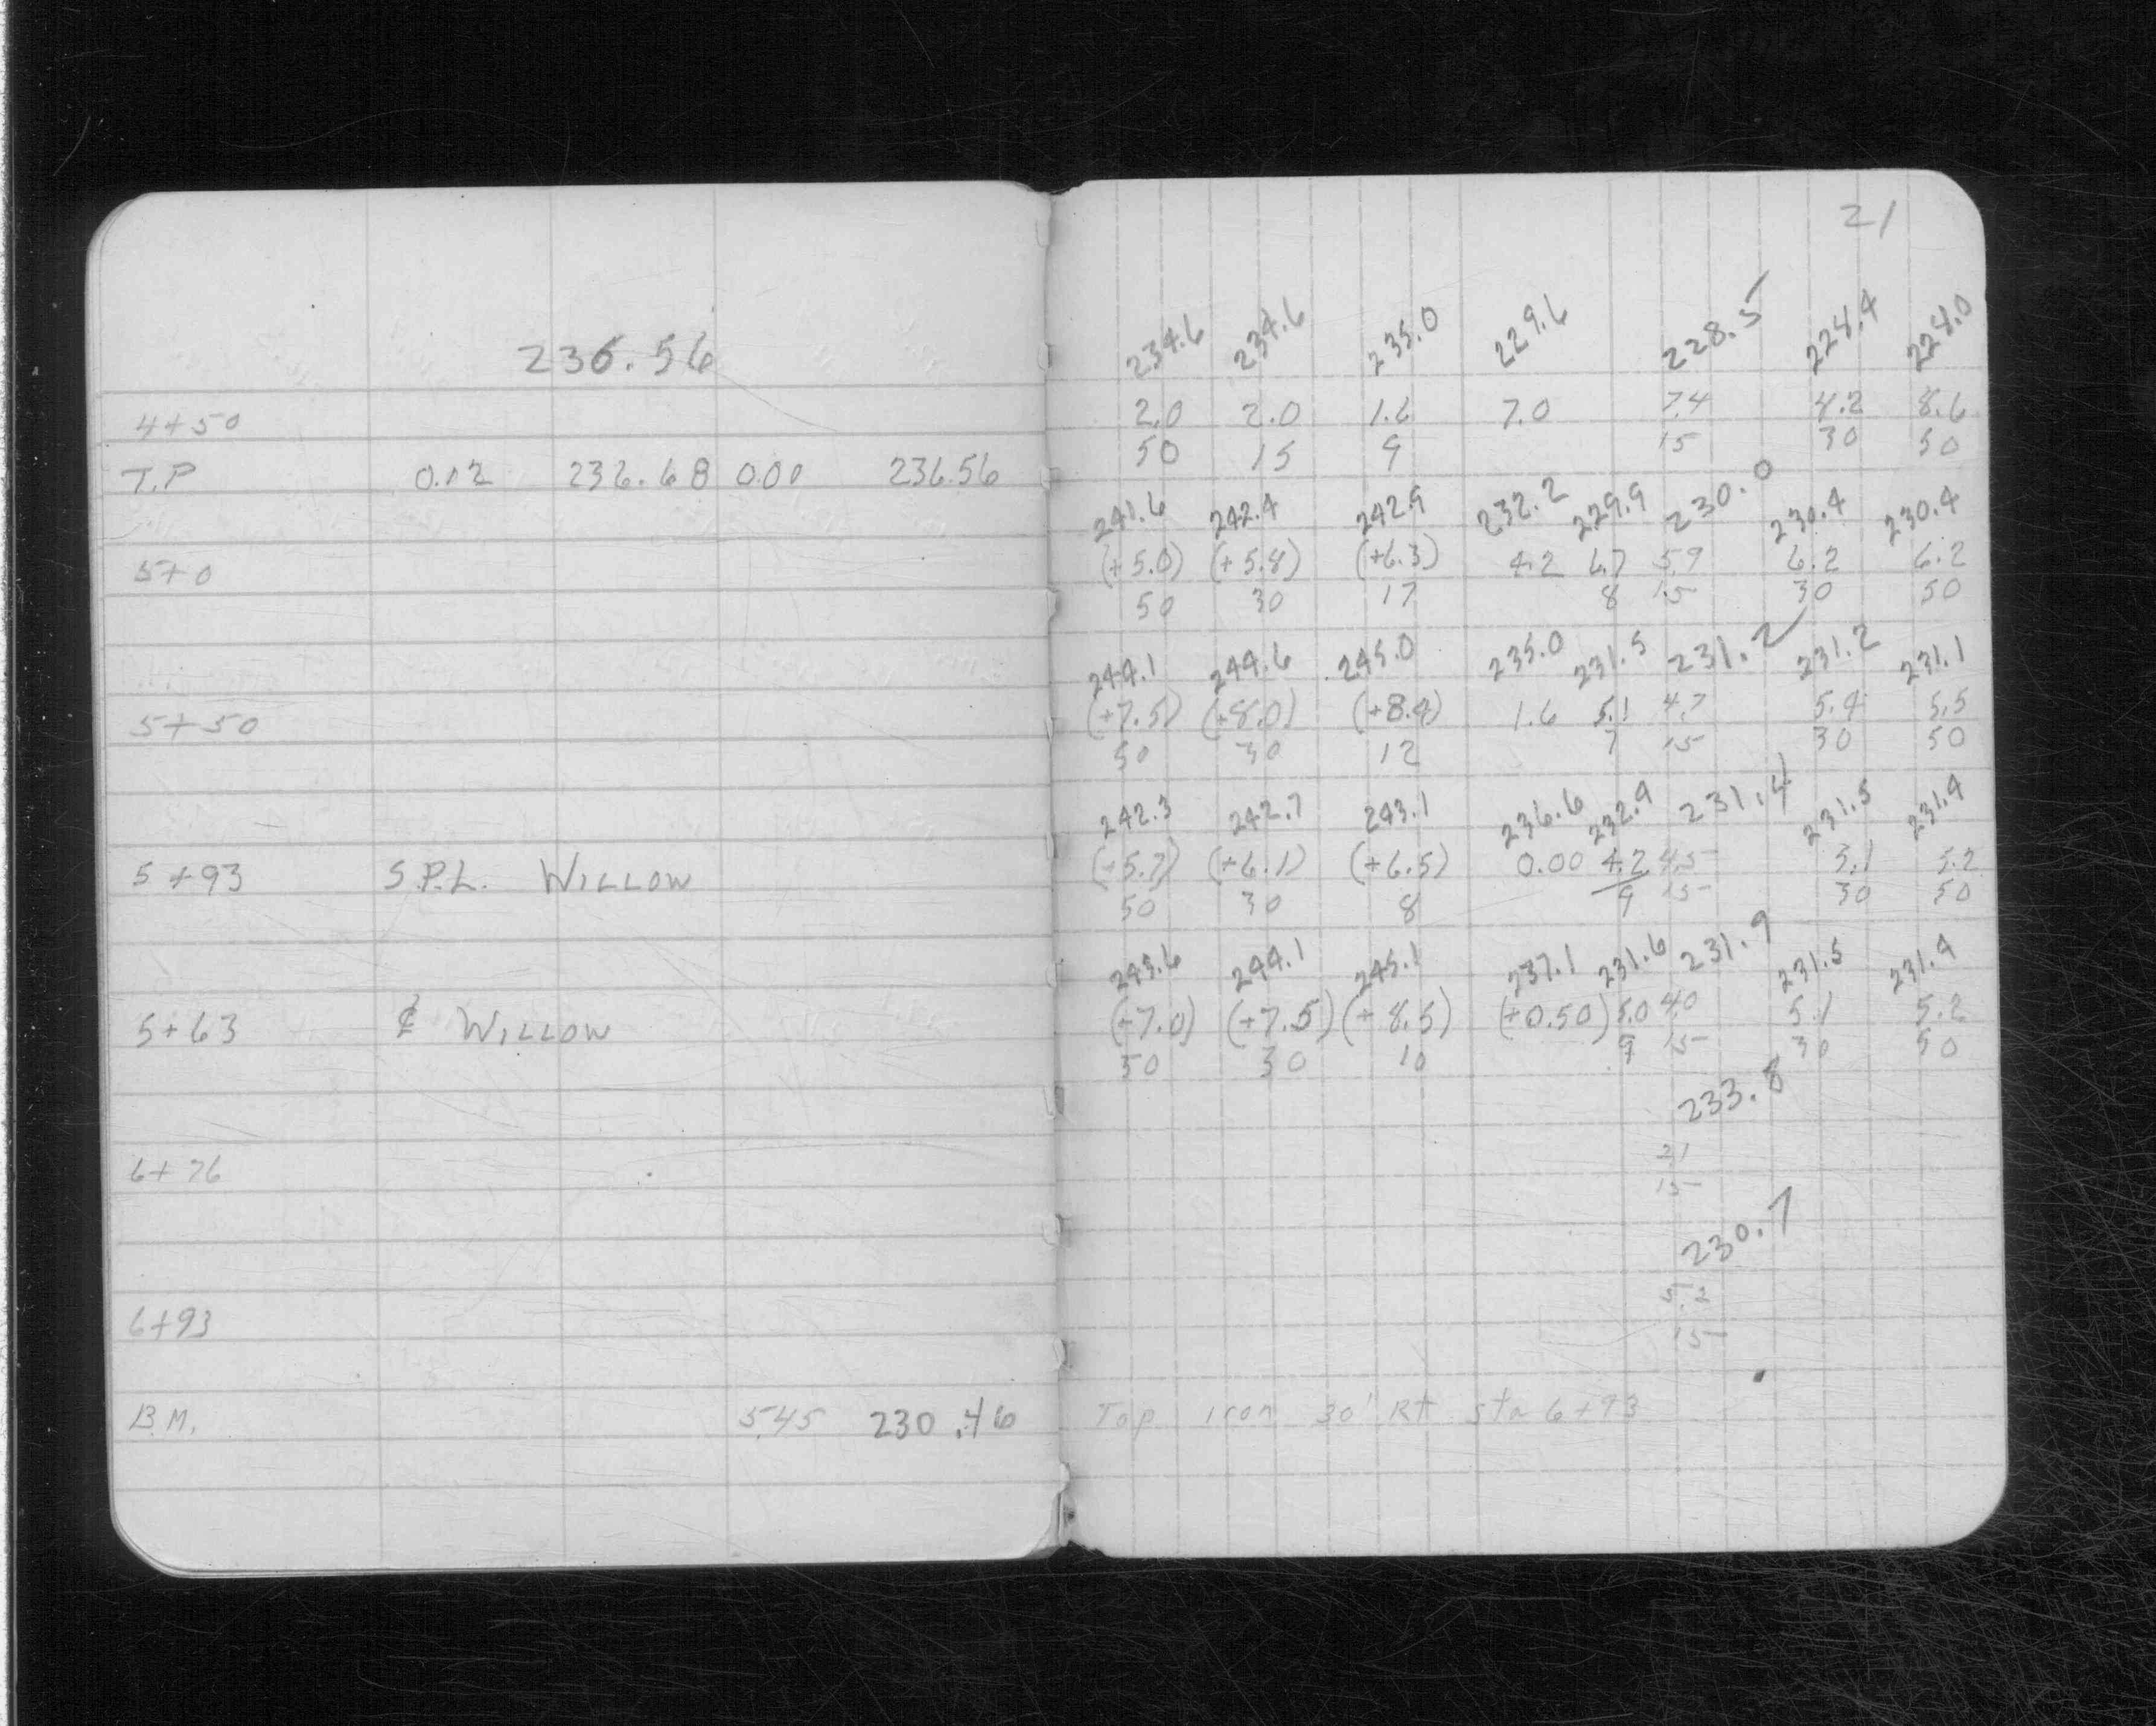 21
236.56
234.6 234.6 235.0 229.6 228.5 228.4 228.0
4+50 2.0 2.0 1.6 7.0 7.4 4.2 8.6
50 15 9 15 30 50
T.P 0.12 236.68 0.00 236.56
241.6 242.4 242.9 232.2 229.9 230.0 230.4 230.4
5+0 (+5.0) (+5.8) (+6.3) 4.2 6.7 5.9 6.2 6.2
50 30 17 8 15 30 50
244.1 244.6 245.0 235.0 231.5 231.2 231.2 231.1
5+50 (+7.5) (+8.0) (+8.4) 1.6 5.1 4.7 5.4 5.5
50 30 12 7 15 30 50
242.3 242.7 243.1 236.6 232.9 231.4 231.5 231.4
5+93 S.P.L. WILLOW (+5.7) (+6.1) (+6.5) 0.00 4.2 4.5 5.1 5.2
50 30 8 9 15 30 50
243.6 244.1 245.1 237.1 231.6 231.9 231.5 231.4
5+63 ₵ WILLOW (+7.0) (+7.5) (+8.5) (+0.50) 5.0 4.0 5.1 5.2
50 30 10 9 15 30 50
233.8
6+76 2.1
15
230.7
5.2
6+93 15
B.M. 5.45 230.46 Top iron 30' Rt sta 6+93